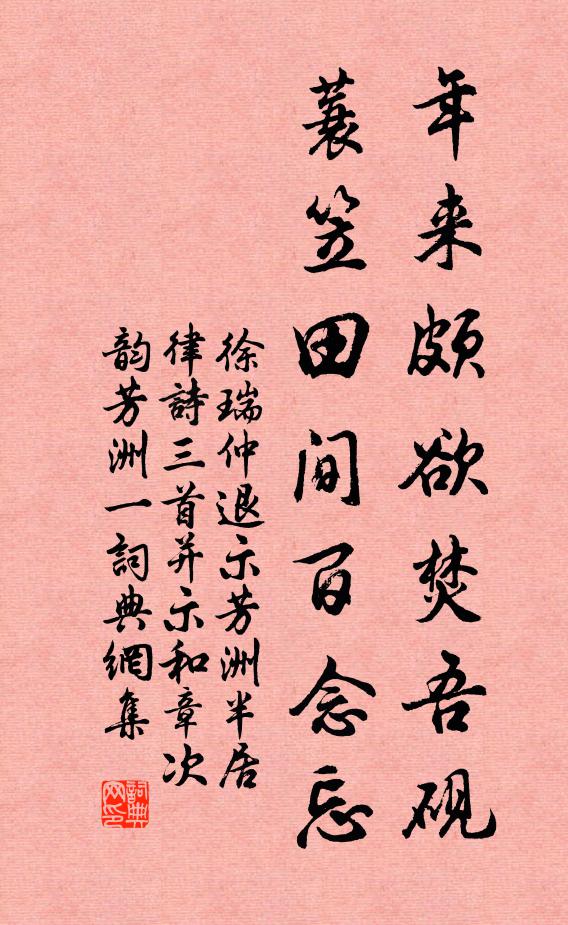 年来頗欲焚吾硯
蓑笠田間百念忘
徐瑞仲退示芳洲半居
律詩三首并示和章次
韵芳洲一詞典網集
詞典网印